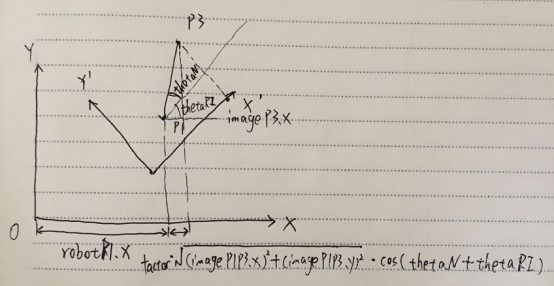 P3
Y
Y'
thetaN
thetaRI
X'
P1
image P3.x
O
X
robotP1.X
factor·√(imageP1P3.x)²+(imageP1P3.y)² · cos(thetaN+thetaRI)